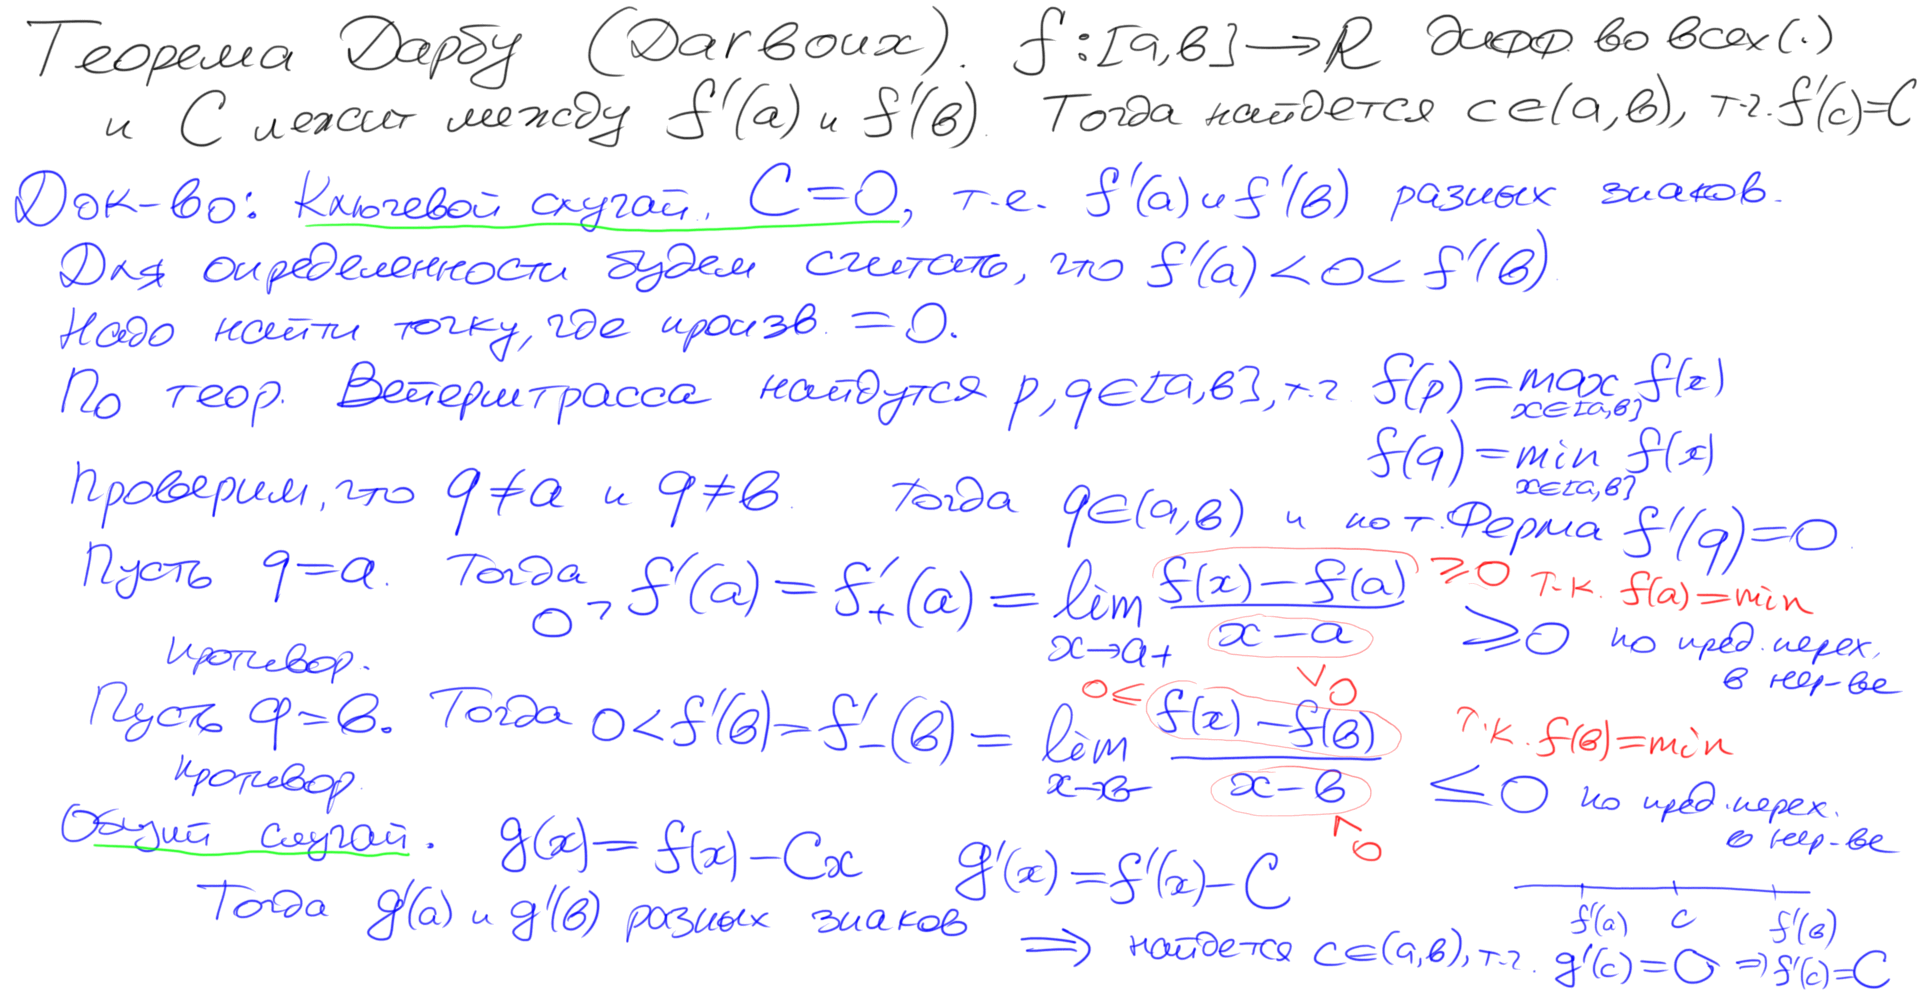 Теорема Дарбу (Darboux). f:[a,b]→R дифф. во всех (·)
и C лежит между f'(a) и f'(b). Тогда найдется c∈(a,b), т.ч. f'(c)=C
Док-во: Ключевой случай. C=0, т.е. f'(a) и f'(b) разных знаков.
Для определенности будем считать, что f'(a)<0<f'(b)
Надо найти точку, где произв. =0.
По теор. Вейерштрасса найдутся p,q∈[a,b], т.ч. f(p)=max f(x)
x∈[a,b]
f(q)=min f(x)
x∈[a,b]
Проверим, что q≠a и q≠b. Тогда q∈(a,b) и по т. Ферма f'(q)=0.
Пусть q=a. Тогда 0>f'(a)=f'₊(a)=lim (f(x)-f(a))/(x-a) ≥0 т.к. f(a)=min
x→a+ ∨0 ≥0 по пред. перех.
в нер-ве
противор.
Пусть q=b. Тогда 0<f'(b)=f'₋(b)=lim 0≤ (f(x)-f(b))/(x-b) т.к. f(b)=min
x→b- ^0 ≤0 по пред. перех.
в нер-ве
противор.
Общий случай. g(x)=f(x)-Cx g'(x)=f'(x)-C
f'(a) C f'(b)
Тогда g'(a) и g'(b) разных знаков
⇒ найдется c∈(a,b), т.ч. g'(c)=0 ⇒ f'(c)=C